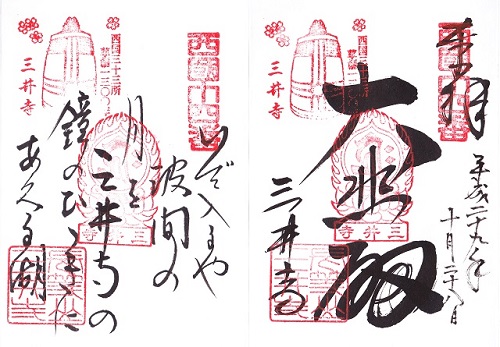 奉拝
平成二十九年
十月二十八日
西國十四番
大悲殿
三井寺
西国三十三所
三井寺
三井寺
西國十四番
いで入るや
波間の
月を
三井寺の
鐘のひゞきに
あくる湖
西国三十三所
三井寺
三井寺